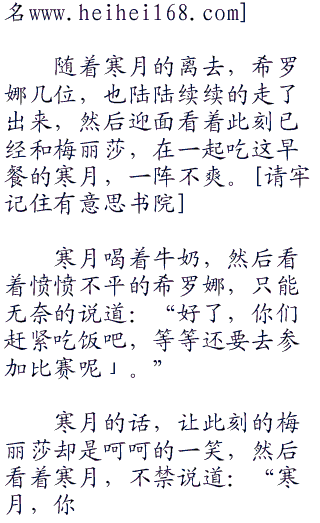 名www.heihei168.com]
随着寒月的离去，希罗
娜几位，也陆陆续续的走了
出来，然后迎面看着此刻已
经和梅丽莎，在一起吃这早
餐的寒月，一阵不爽。[请牢
记住有意思书院]
寒月喝着牛奶，然后看
着愤愤不平的希罗娜，只能
无奈的说道：“好了，你们
赶紧吃饭吧，等等还要去参
加比赛呢」。”
寒月的话，让此刻的梅
丽莎却是呵呵的一笑，然后
看着寒月，不禁说道：“寒
月，你